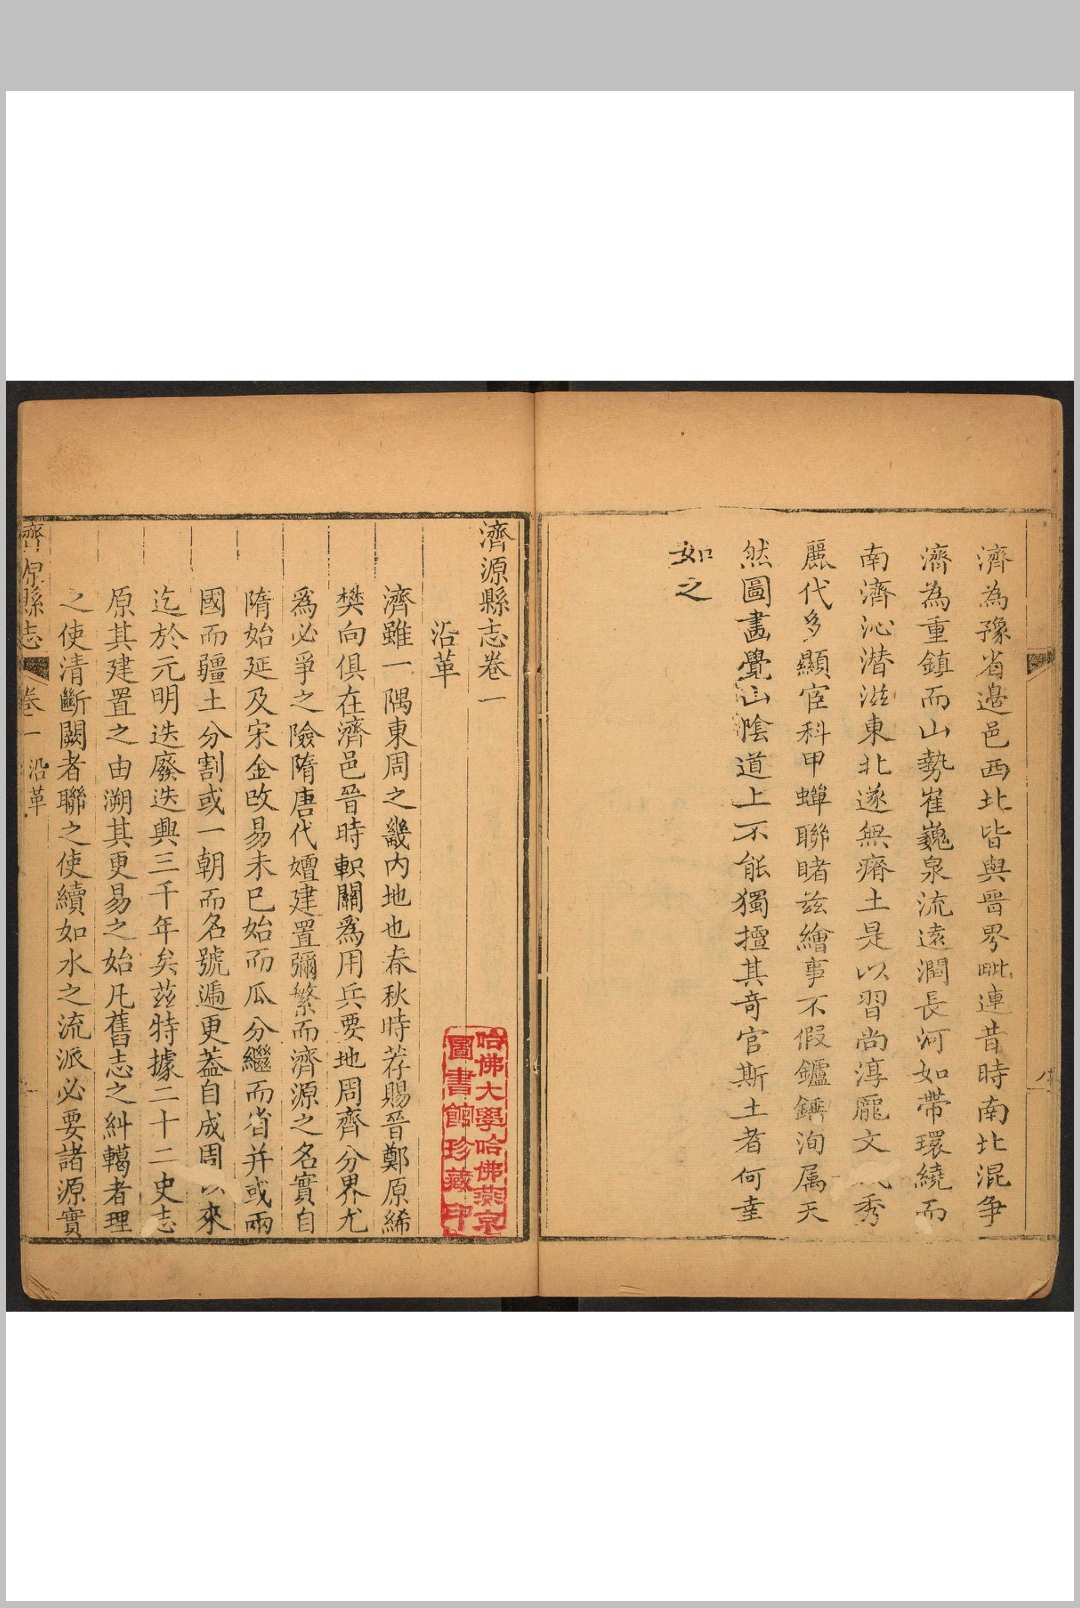 濟為豫省邉邑西北皆與晋界毗連昔時南北混争
濟為重鎮而山勢崔巍泉流遠濶長河如帶環繞而
南濟沁潜滋東北遂無瘠土是以習尚淳龎文秀
麗代多顯宦科甲蟬聯睹兹繪事不假鑪錘洵属天
然圖畵覺山陰道上不能獨擅其奇官斯土者何幸
如之
濟源縣志卷一
沿革
濟雖一隅東周之畿内地也春秋時荐賜晉鄭原絺
樊向俱在濟邑晉時軹關爲用兵要地周齊分界尤
爲必爭之險隋唐代嬗建置彌繁而濟源之名實自
隋始延及宋金改易未已始而瓜分繼而省并或兩
國而疆土分割或一朝而名號遞更葢自成周以來
迄於元明迭廢迭興三千年矣茲特據二十二史志
原其建置之由溯其更易之始凡舊志之糾轕者理
之使清斷闕者聯之使續如水之流派必要諸源實
濟源縣志 卷一 沿革
哈佛大學哈佛燕京
圖書館珍藏印